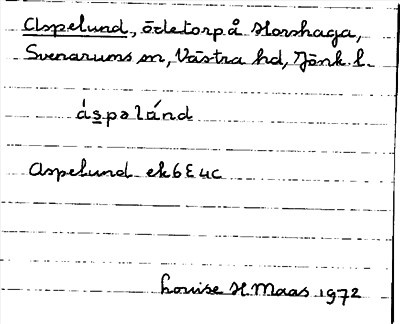 Aspelund, ödetorp å Horshaga,
Svenarums sn, Västra hd, Jönk. l.
áspəlánd
Aspelund ek 6 E 4c
Louise H Maas 1972